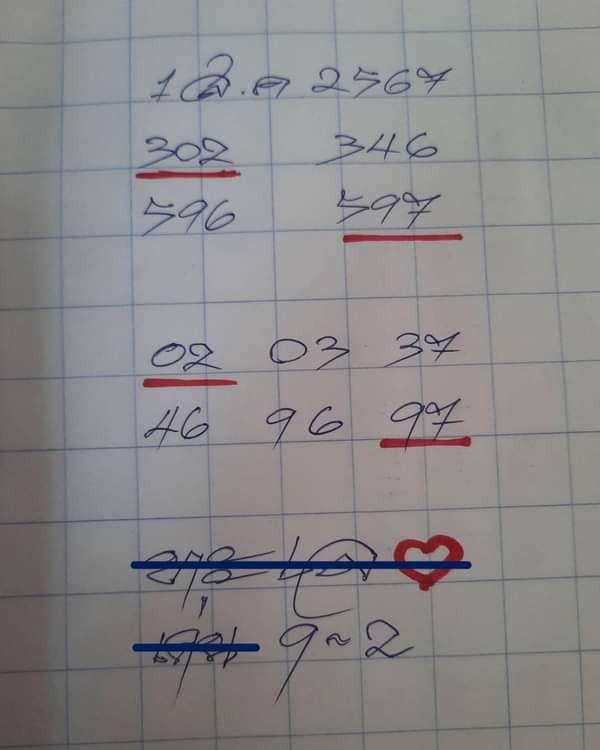 1 ส.ค 2567
302 346
596 597
02 03 37
46 96 97
9~2